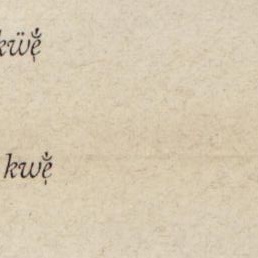 kẅę̌
kwę̌